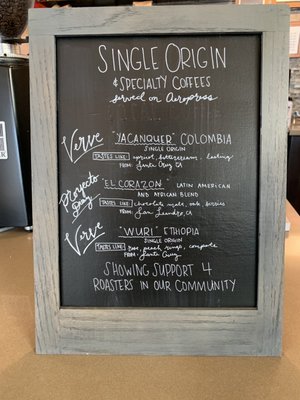 SINGLE ORIGIN
& SPECIALTY COFFEES
served on Aeropress
Verve "YACANQUER" COLOMBIA
SINGLE ORIGIN
TASTES LIKE: apricot, butterscotch,
FROM: Santa Cruz, CA
Proyecto Diaz "EL CORAZON" LATIN AMERICAN
AND AFRICAN BLEND
TASTES LIKE: chocolate malt, oak, berries
FROM: San Leandro, CA
Verve "WURI" ETHIOPIA
SINGLE ORIGIN
TASTES LIKE: Rose, peach rings, compote
FROM: Santa Cruz
SHOWING SUPPORT 4
ROASTERS IN OUR COMMUNITY